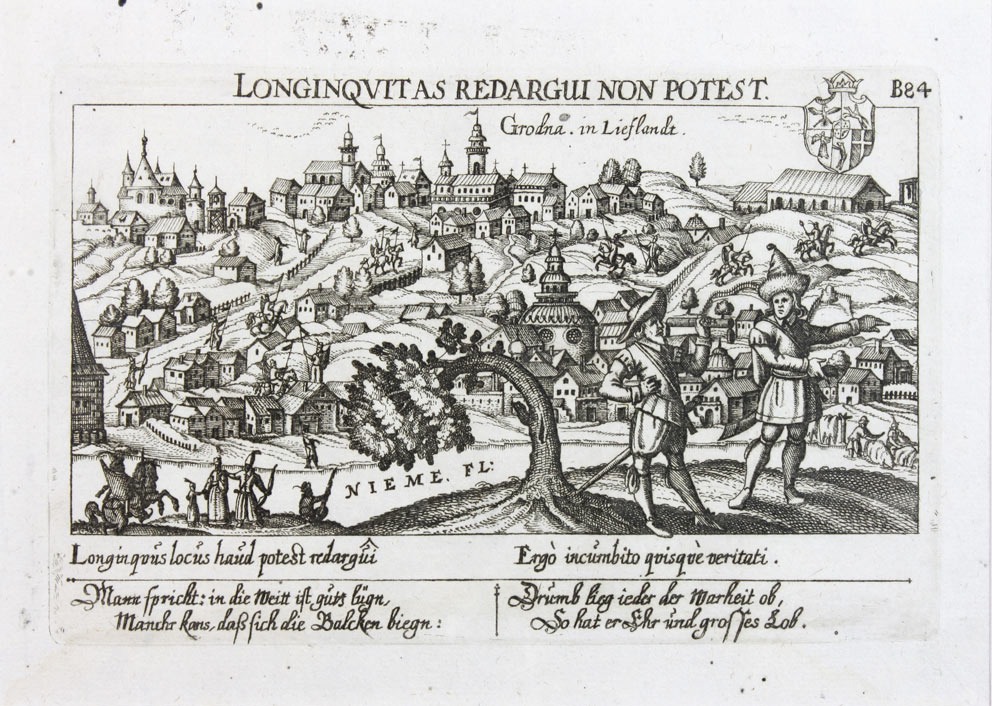 LONGINQVITAS REDARGUI NON POTEST.
B84
Grodna. in Lieflandt.
NIEME. FL:
Longinqvus locus haud potest redargûi
Ergò incumbito qvisqvè veritati.
Mann spricht: in die Weitt ist guts lügn,
Manchr kans, daß sich die Balcken biegn:
Drumb lieg ieder der Warheit ob,
So hat er Ehr und grosses Lob.